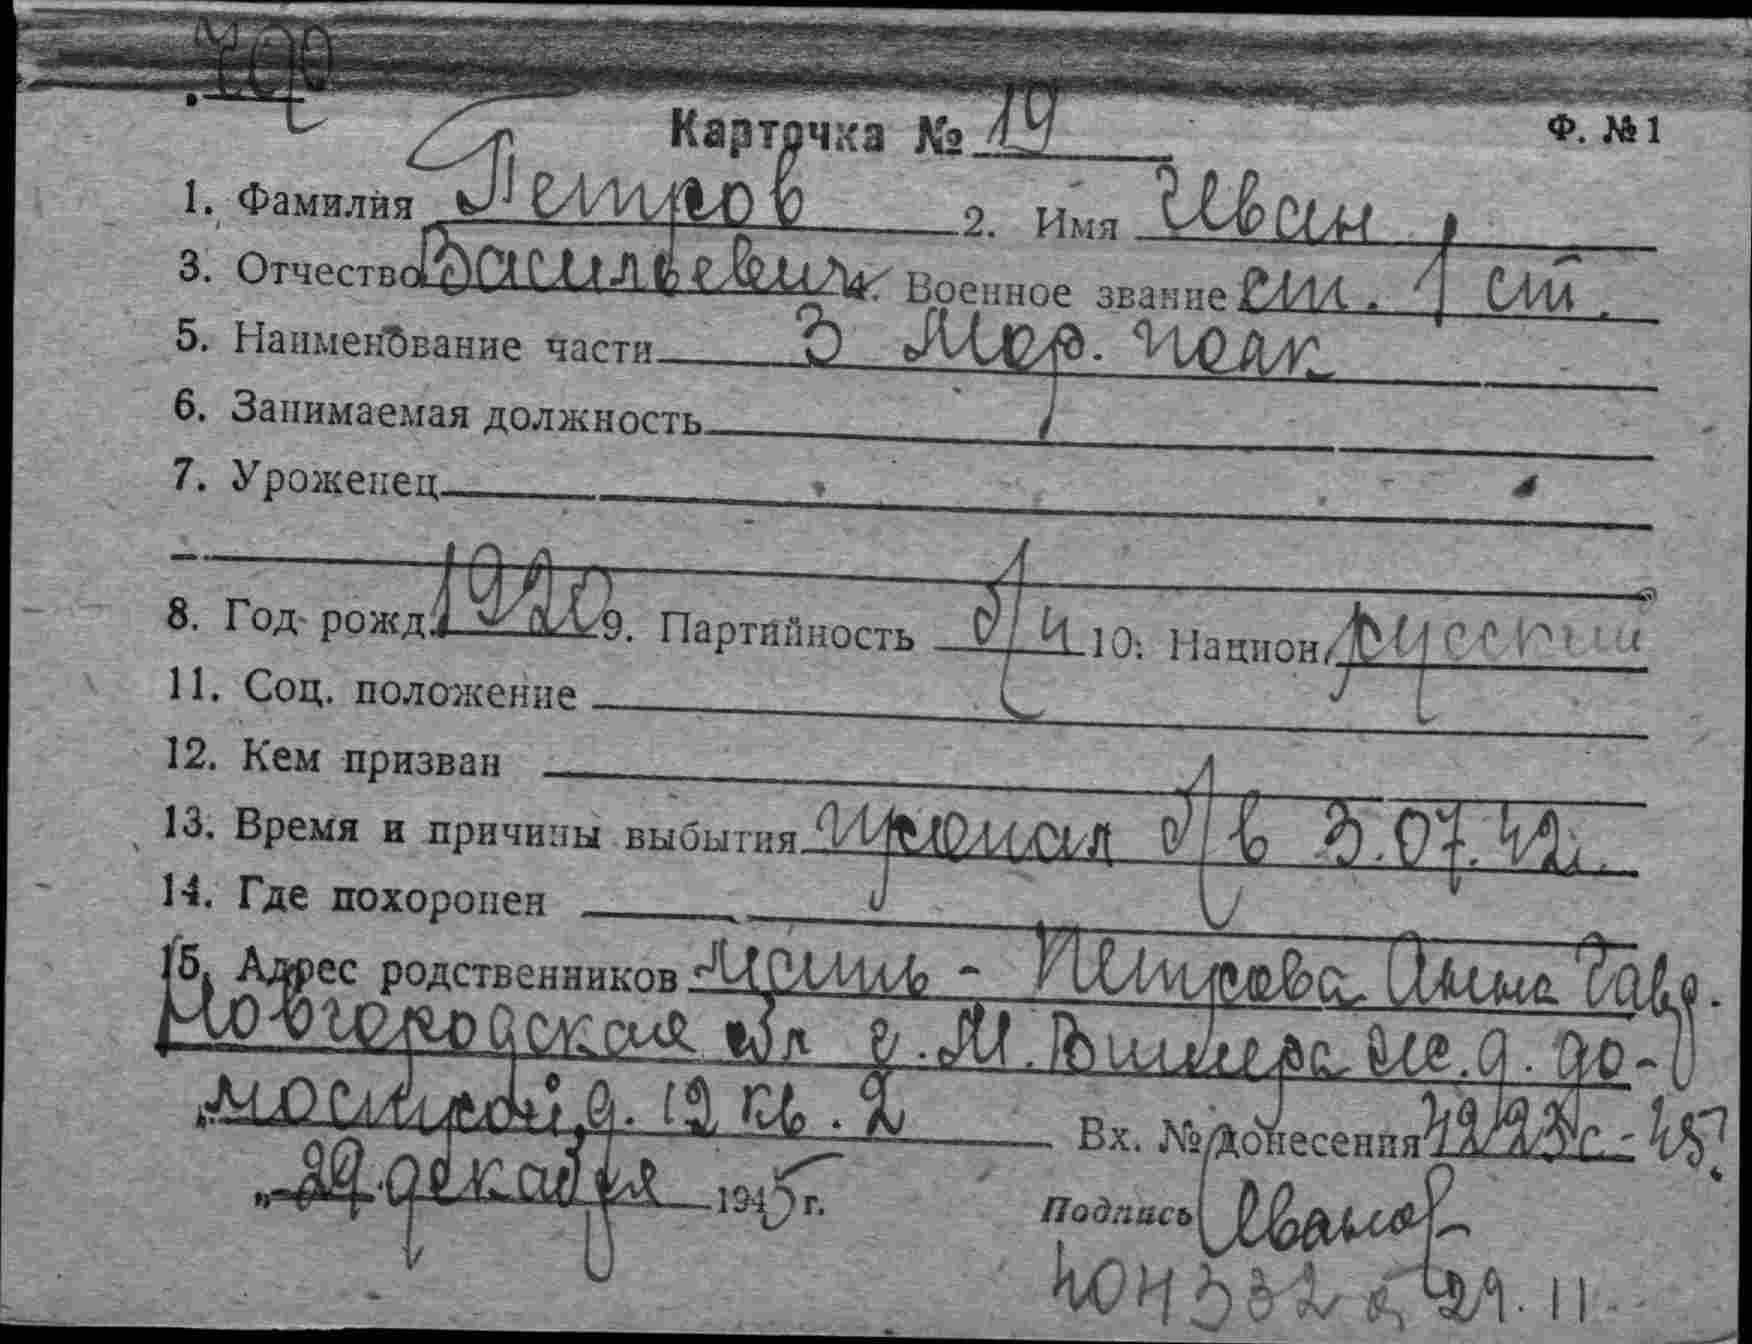 Карточка № 19 Ф. № 1
1. Фамилия Петров 2. Имя Иван
3. Отчество Васильевич. Военное звание ст. 1 ст.
5. Наименование части 3 Мор. полк
6. Занимаемая должность
7. Уроженец
8. Год рожд. 1920 9. Партийность б/п 10. Национ. русский
11. Соц. положение
12. Кем призван
13. Время и причины выбытия пропал б/в 3.07.42г.
14. Где похоронен
15. Адрес родственников Мать - Петрова Анна Гавр.
Новгородская обл г. М. Вишера ж.д. до-
мострой, д. 12 кв. 2 Вх. № донесения 42123с-45г.
„29 декабря 1945 г. Подпись Иванов
404332 с 29.11